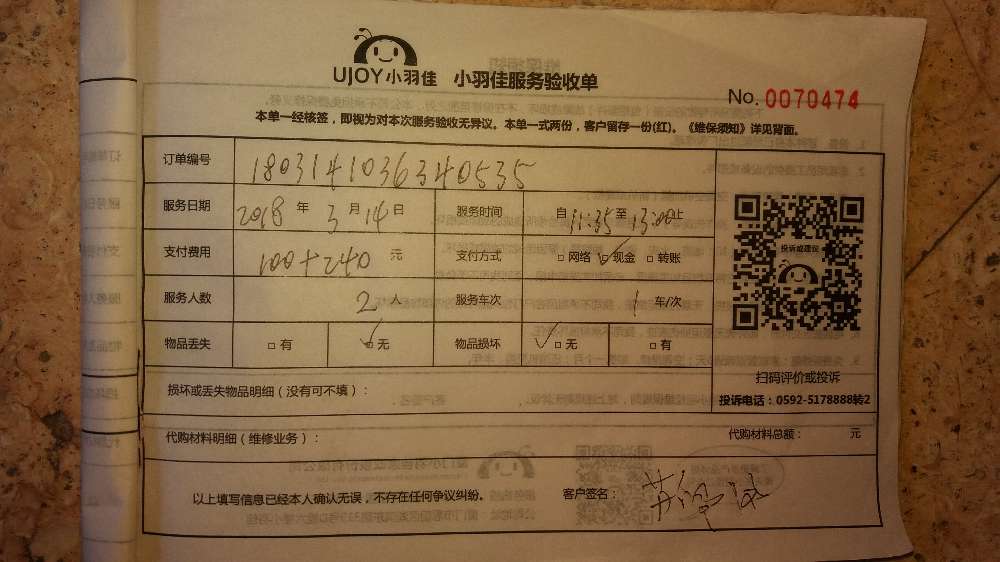 UJOY小羽佳 小羽佳服务验收单
No. 0070474
本单一经核签，即视为对本次服务验收无异议。本单一式两份，客户留存一份(红)。《维保须知》详见背面。
订单编号 1803141036340535
服务日期 2018 年 3 月 14 日 服务时间 自 11:35 至 13:00
支付费用 100+240 元 支付方式 □ 网络 ☑ 现金 □ 转账
服务人数 2 人 服务车次 1 车/次
物品丢失 □ 有 ☑ 无 物品损坏 ☑ 无 □ 有
投诉或建议
扫码评价或投诉
投诉电话：0592-5178888转2
损坏或丢失物品明细（没有可不填）：
代购材料明细（维修业务）： 代购材料总额： 元
以上填写信息已经本人确认无误，不存在任何争议纠纷。 客户签名：